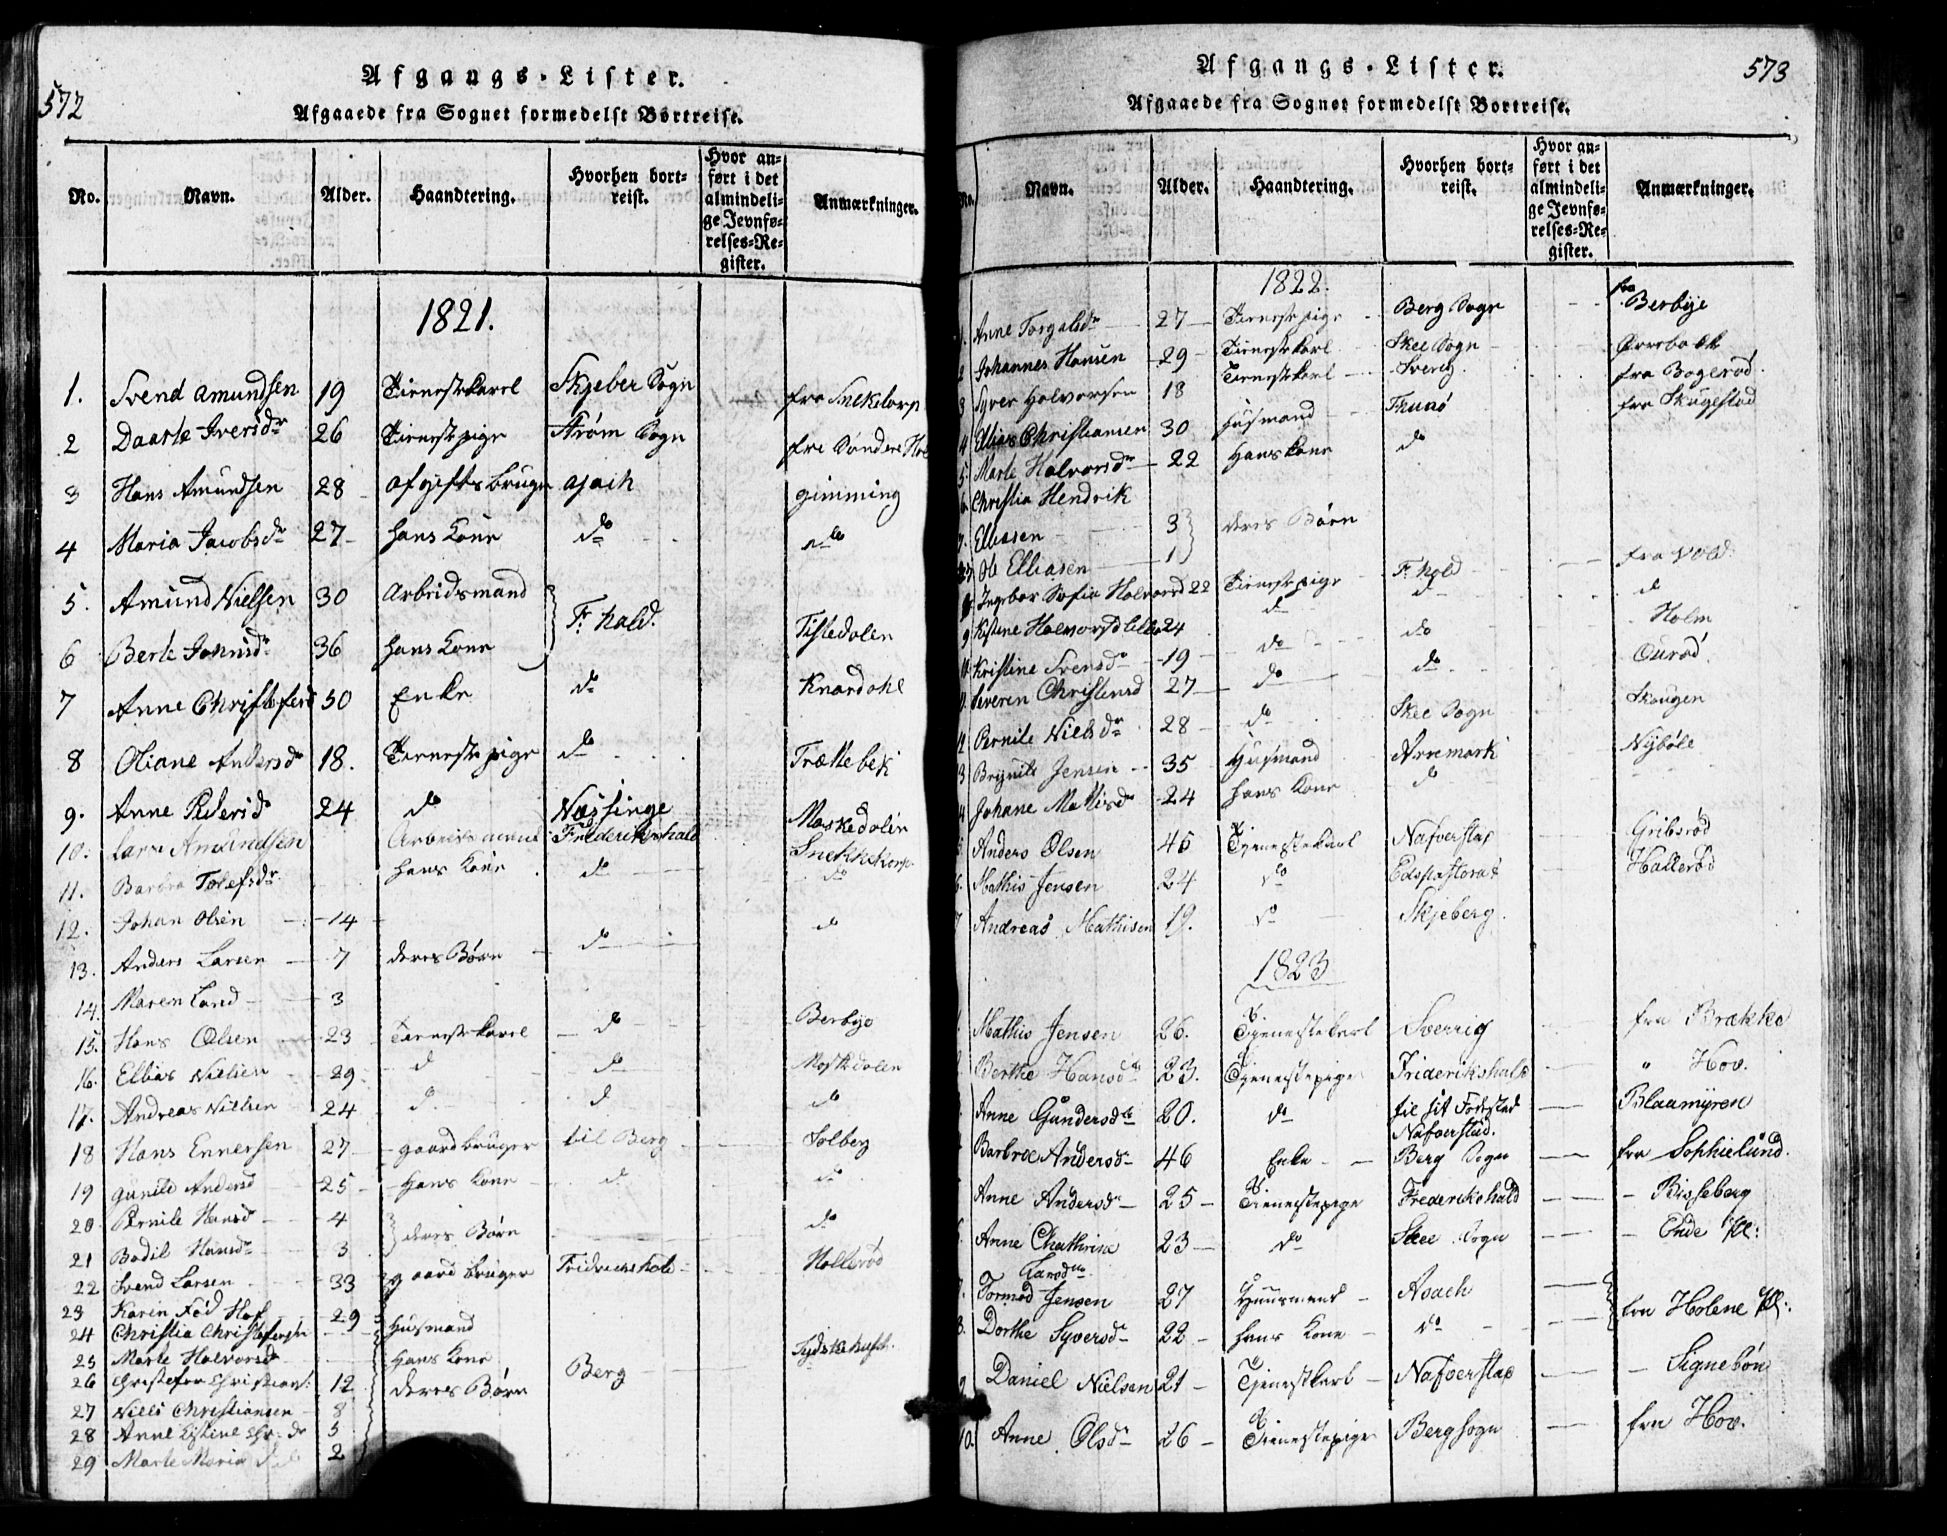 572
Afgangs-Lister.
Afgaaede fra Sognet formedelst Bortreise.
No. Navn. Alder. Haandtering. Hvorhen bortreist. Hvor anført i det almindelige Jevnførelses-Register. Anmærkninger.
1821.
1. Svend Amundsen 19 Tienestekarl Skjeber Sogn fra Snekstorp
2 Daarte Iversdr 26 Tienestepige Strøm Sogn fra Søndere
3 Hans Amundsen 28 Afgiftsbruger Asach Gimming
4 Maria Jacobsdr 27 hans Kone do do
5. Amund Nielsen 30 Arbeidsmand Fr: hald.
6 Berte 36 hans Kone Tistedalen
7 Anne Christofersd 50 Enke do Knardahl
8 Oliane Andersdr 18. Tienestepige do Trættebek
9. Anne Pedersd 24 do Næssinge Moskedalen
10. Lars Amundsen Frederikshald
11. Barbra hans Kone do do
12. Johan Olsen 14 do
13. Anders Larsen 7 deres Børn do
14. Maren Larsd 3
15. Hans Olsen 23 Tienestekarl do Berbye
16. Ellias Nielsen 29 d do Moskedalen
17. Andreas Nielsen 24 d d do
18 Hans Ennersen 27 gaardbruger til Berg Solberg
19 Gunild Andersd 25 Hans Kone d do
20 Pernile Hansd 4 deres Børn do
21 Bodil Hansdr 3
22 Svend Larsen 33 gaardbruger Hallerød
23 Karin 29
24 Christia Christofersen Husmand
25 Marte Halvorsdr Hans Kone
26 Christofer Christians: 12 deres Børn Berg
27 Niels Christiansen 8
28 Anne Kistine 5
29 Marte Maria 2
573
Afgangs-Lister.
Afgaaede fra Sognet formedelst Bortreise.
No. Navn. Alder. Haandtering. Hvorhen bortreist. Hvor anført i det almindelige Jevnførelses-Register. Anmærkninger.
1822.
1. Anne Torgalsdr 27 Tienestepige Berg Sogn fra Berbye
2 Johannes Hansen 29 Tienestekarl Skee Sogn
3 Syver Halvorsen 18 Tienestekarl Sverig fra Bogerød
4 Ellias Christiansen 30 Husmand Thunø fra Skogestad
5. Marte Halvorsdr 22 Hans Kone do
6. Christia Hendrik
Elliasen 3 deres Børn
7. Ole Elliasen 1
8. Ingebor Sofia Halvorsd 22 Tienestepige Fr: hald fra Vold
9. Kistine Halvorsd 24 d d d
10. Kristine Svensdr 19 do do Holm
11. Severin Christensd 27 do do
12 Pernile Nielsdr 28 do Skee Sogn Skougen
13 Jensen 35 Husmand Aremark Nybøle
14 Johane Mattisdr 24 hans Kone d
15. Anders Olsen 45 Tjenestekarl Nafverstad Gribsrød
16. Mathis Jensen 24 do Hallerød
17 Andreas Mathisen 19. do Skjeberg.
1823
1. Mathis Jensen 26. Tjenestekarl Sverrig fra Brække
2. Berthe Hansdr 23. Tjenestepige Friderikshald " Hov.
3. Anne Gundersdr 20. do til sit Fødested Nafverstad. Blaamyren
4. Barbroe Andersdr 46 Enke Berg Sogn fra Sophielund.
5. Anne Andersdr 25 Tienestepige Frederikshald Bisseberg
6. Anne Chathrine Larsdtr 23 do Skee Sogn Ende Pl:
7. Tormod Jensen 27 Huusmand Asach fra Holene Pl:
8. Dorthe Syversdr 22 hans Kone do
9. Daniel Nielsen 21 Tjenestkarl Nafverstad Signebøn
10. Anne Olsdr 26 Tienestepige Berg Sogn fra Hov.